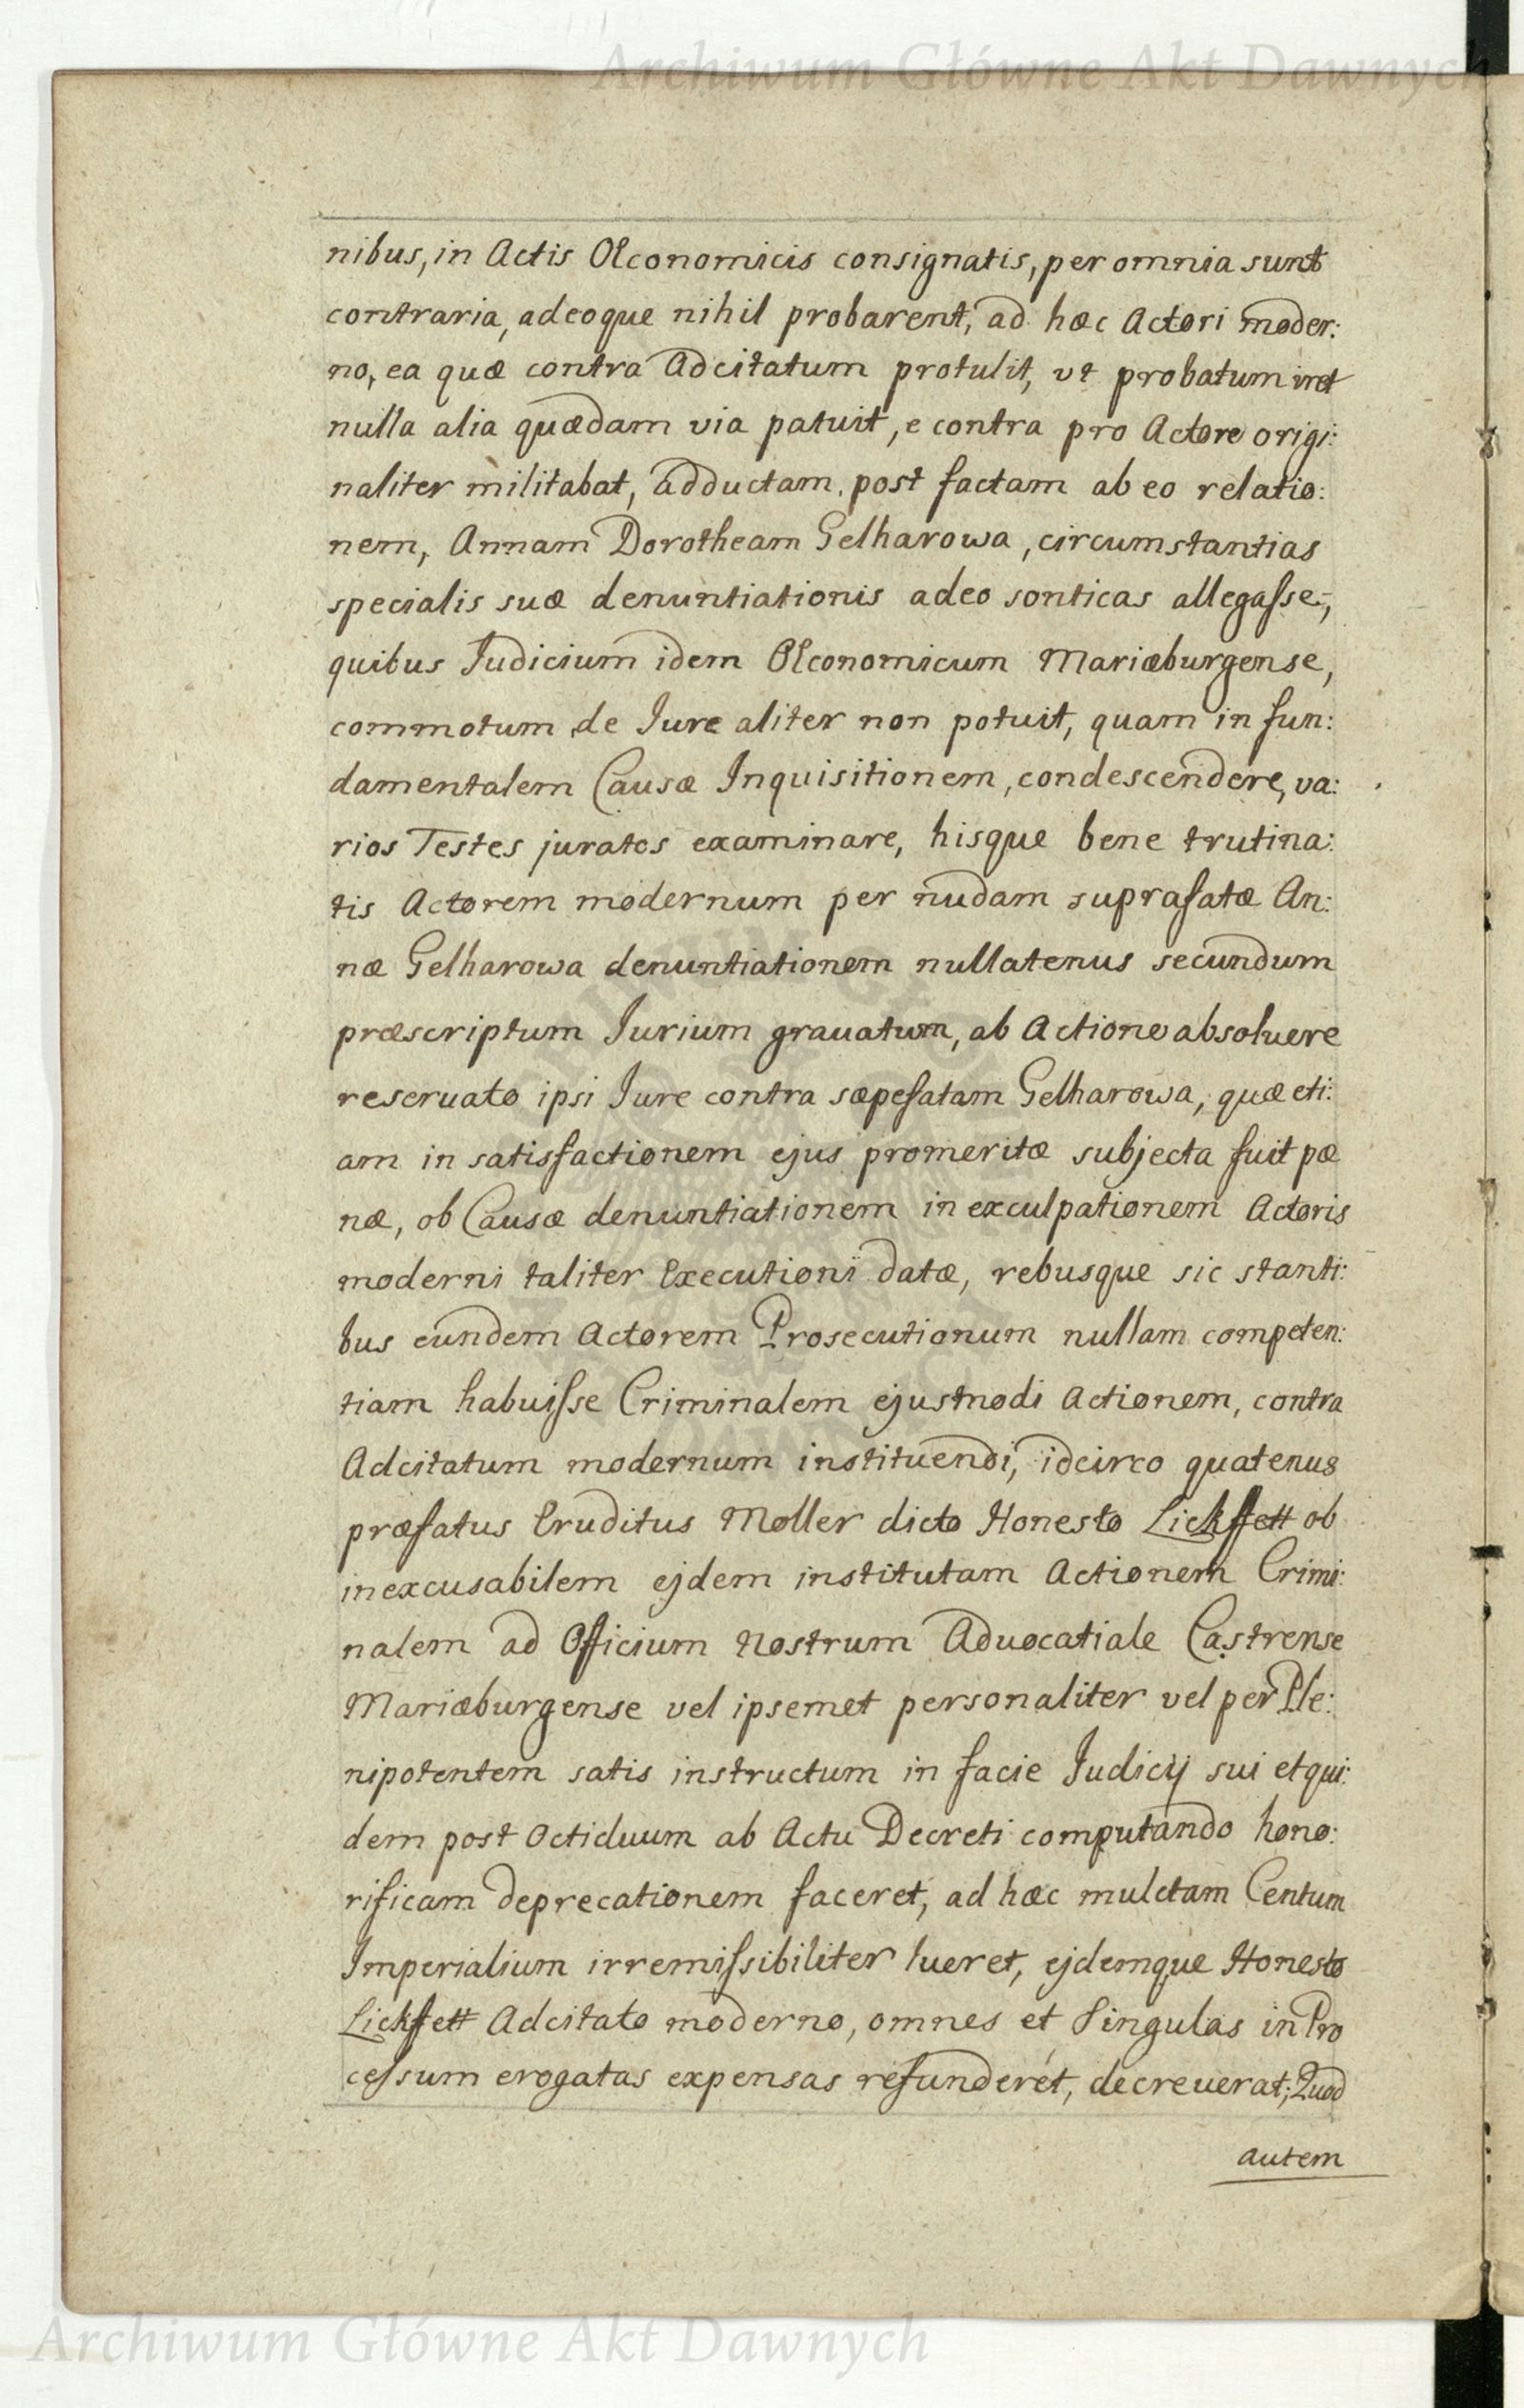 Archiwum Główne Akt Dawnych
nibus, in Actis Œconomicis consignatis, per omnia sunt
contraria, adeoque nihil probarent, ad hæc Actori moder:
no, ea quæ contra Adcitatum protulit, vt probatum iret
nulla alia quædam via patuit, e contra pro Actore origi:
naliter militabat, adductam, post factam ab eo relatio:
nem, Annam Dorotheam Gelharowa, circumstantias
specialis suæ denuntiationis adeo sonticas allegaſse,
quibus Judicium idem Œconomicum Mariæburgense,
commotum de Jure aliter non potuit, quam in fun:
damentalem Causæ Inquisitionem, condescendere, va:
rios Testes juratos examinare, hisque bene trutina:
tis Actorem modernum per nudam suprafatæ An:
næ Gelharowa denuntiationem nullatenus secundum
præscriptum Jurium grauatum, ab Actione absoluere
reseruato ipsi Jure contra sæpefatam Gelharowa, quæ eti:
am in satisfactionem ejus promeritæ subjecta fuit pæ
næ, ob Causæ denuntiationem in exculpationem Actoris
moderni taliter Executioni datæ, rebusque sic stanti:
bus eundem Actorem Prosecutionum nullam competen:
tiam habuiſse Criminalem ejusmodi Actionem, contra
Adcitatum modernum instituendi, idcirco quatenus
præfatus Eruditus Moller dicto Honesto Lickfett ob
inexcusabilem ejdem institutam Actionem Crimi:
nalem ad Officium Nostrum Aduocatiale Castrense
Mariæburgense vel ipsemet personaliter vel per Ple:
nipotentem satis instructum in facie Judicij sui et qui:
dem post Octiduum ab Actu Decreti computando hono:
rificam deprecationem faceret, ad hæc mulctam Centum
Imperialium irremiſsibiliter lueret, ejdemque Honesto
Lickfett Adcitato moderno, omnes et Singulas in Pro
ceſsum erogatas expensas refunderet, decreuerat; Quod
autem
Archiwum Główne Akt Dawnych